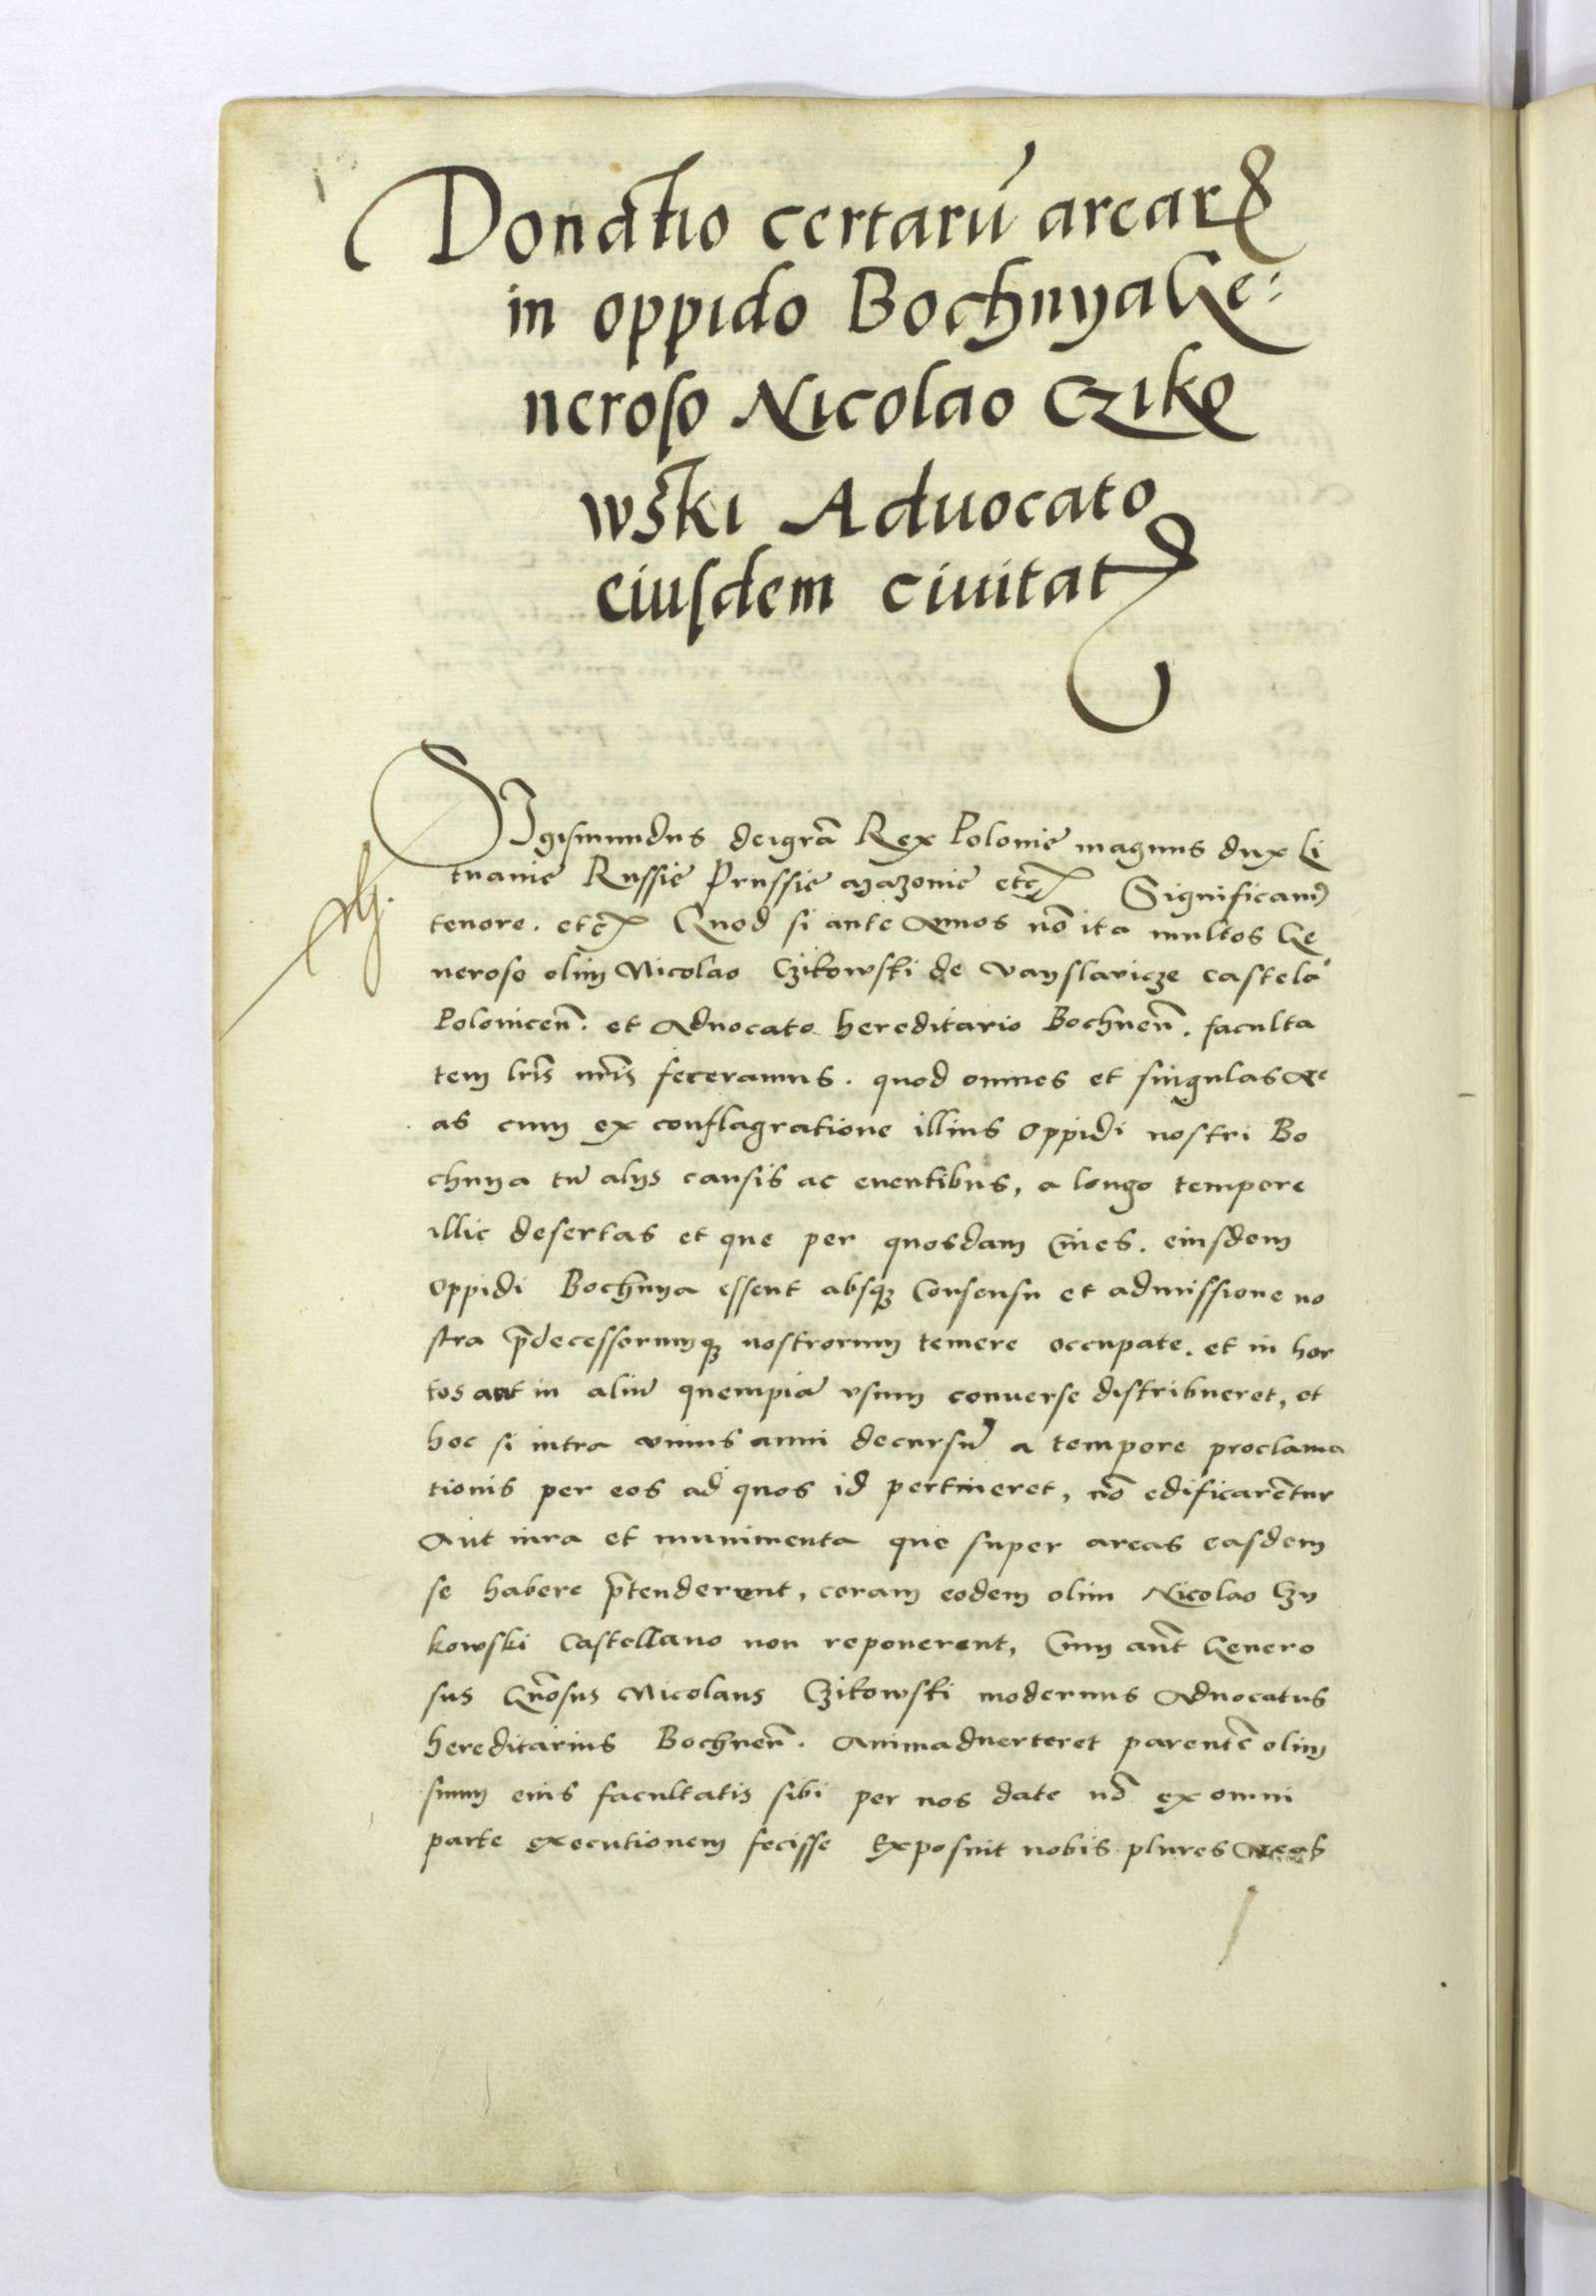 Donatio certarū arearꝝ
in oppido Bochnya Ge:
neroso Nicolao Cziko
wski Aduocato
eiusdem ciuitatꝭ
Sigismundus dei grā Rex Polonie magnus dux Li
tuanie Russie Prussie Mazouie etc̄. Significam9
tenore. etc̄. Quod si ante Annos nō ita multos Ge
neroso olim Nicolao Czikowski de Vayslawicze castela⁰
Polonicen̄. et Aduocato hereditario Bochnen̄. faculta
tem lr̄is nr̄is feceramus. quod omnes et singulas Are
as cum ex conflagratione illius oppidi nostri Bo
chnya tū alys causis ac euentibus, a longo tempore
illic desertas et que per quosdam Ciues. eiusdem
oppidi Bochnya essent absqȝ Consensu et admissione no
stra p̄decessorumqȝ nostrorum temere occupate. et in hor
tos aut in aliū quempiā vsum conuerse distribueret, et
hoc si intra vnius anni decursū a tempore proclama
tionis per eos ad quos id pertineret, nō edificarētur
Aut iura et munimenta que super areas easdem
se habere p̄tenderent, coram eodem olim Nicolao Czy
kowski Castellano non reponerent, Cum aūt Genero
sus Gn̄osus Nicolaus Czikowski modernus Aduocatus
hereditarius Bochnen̄. Animaduerteret parentē olim
suum eius facultatis sibi per nos date nō ex omni
parte executionem fecisse Exposuit nobis plures Areas